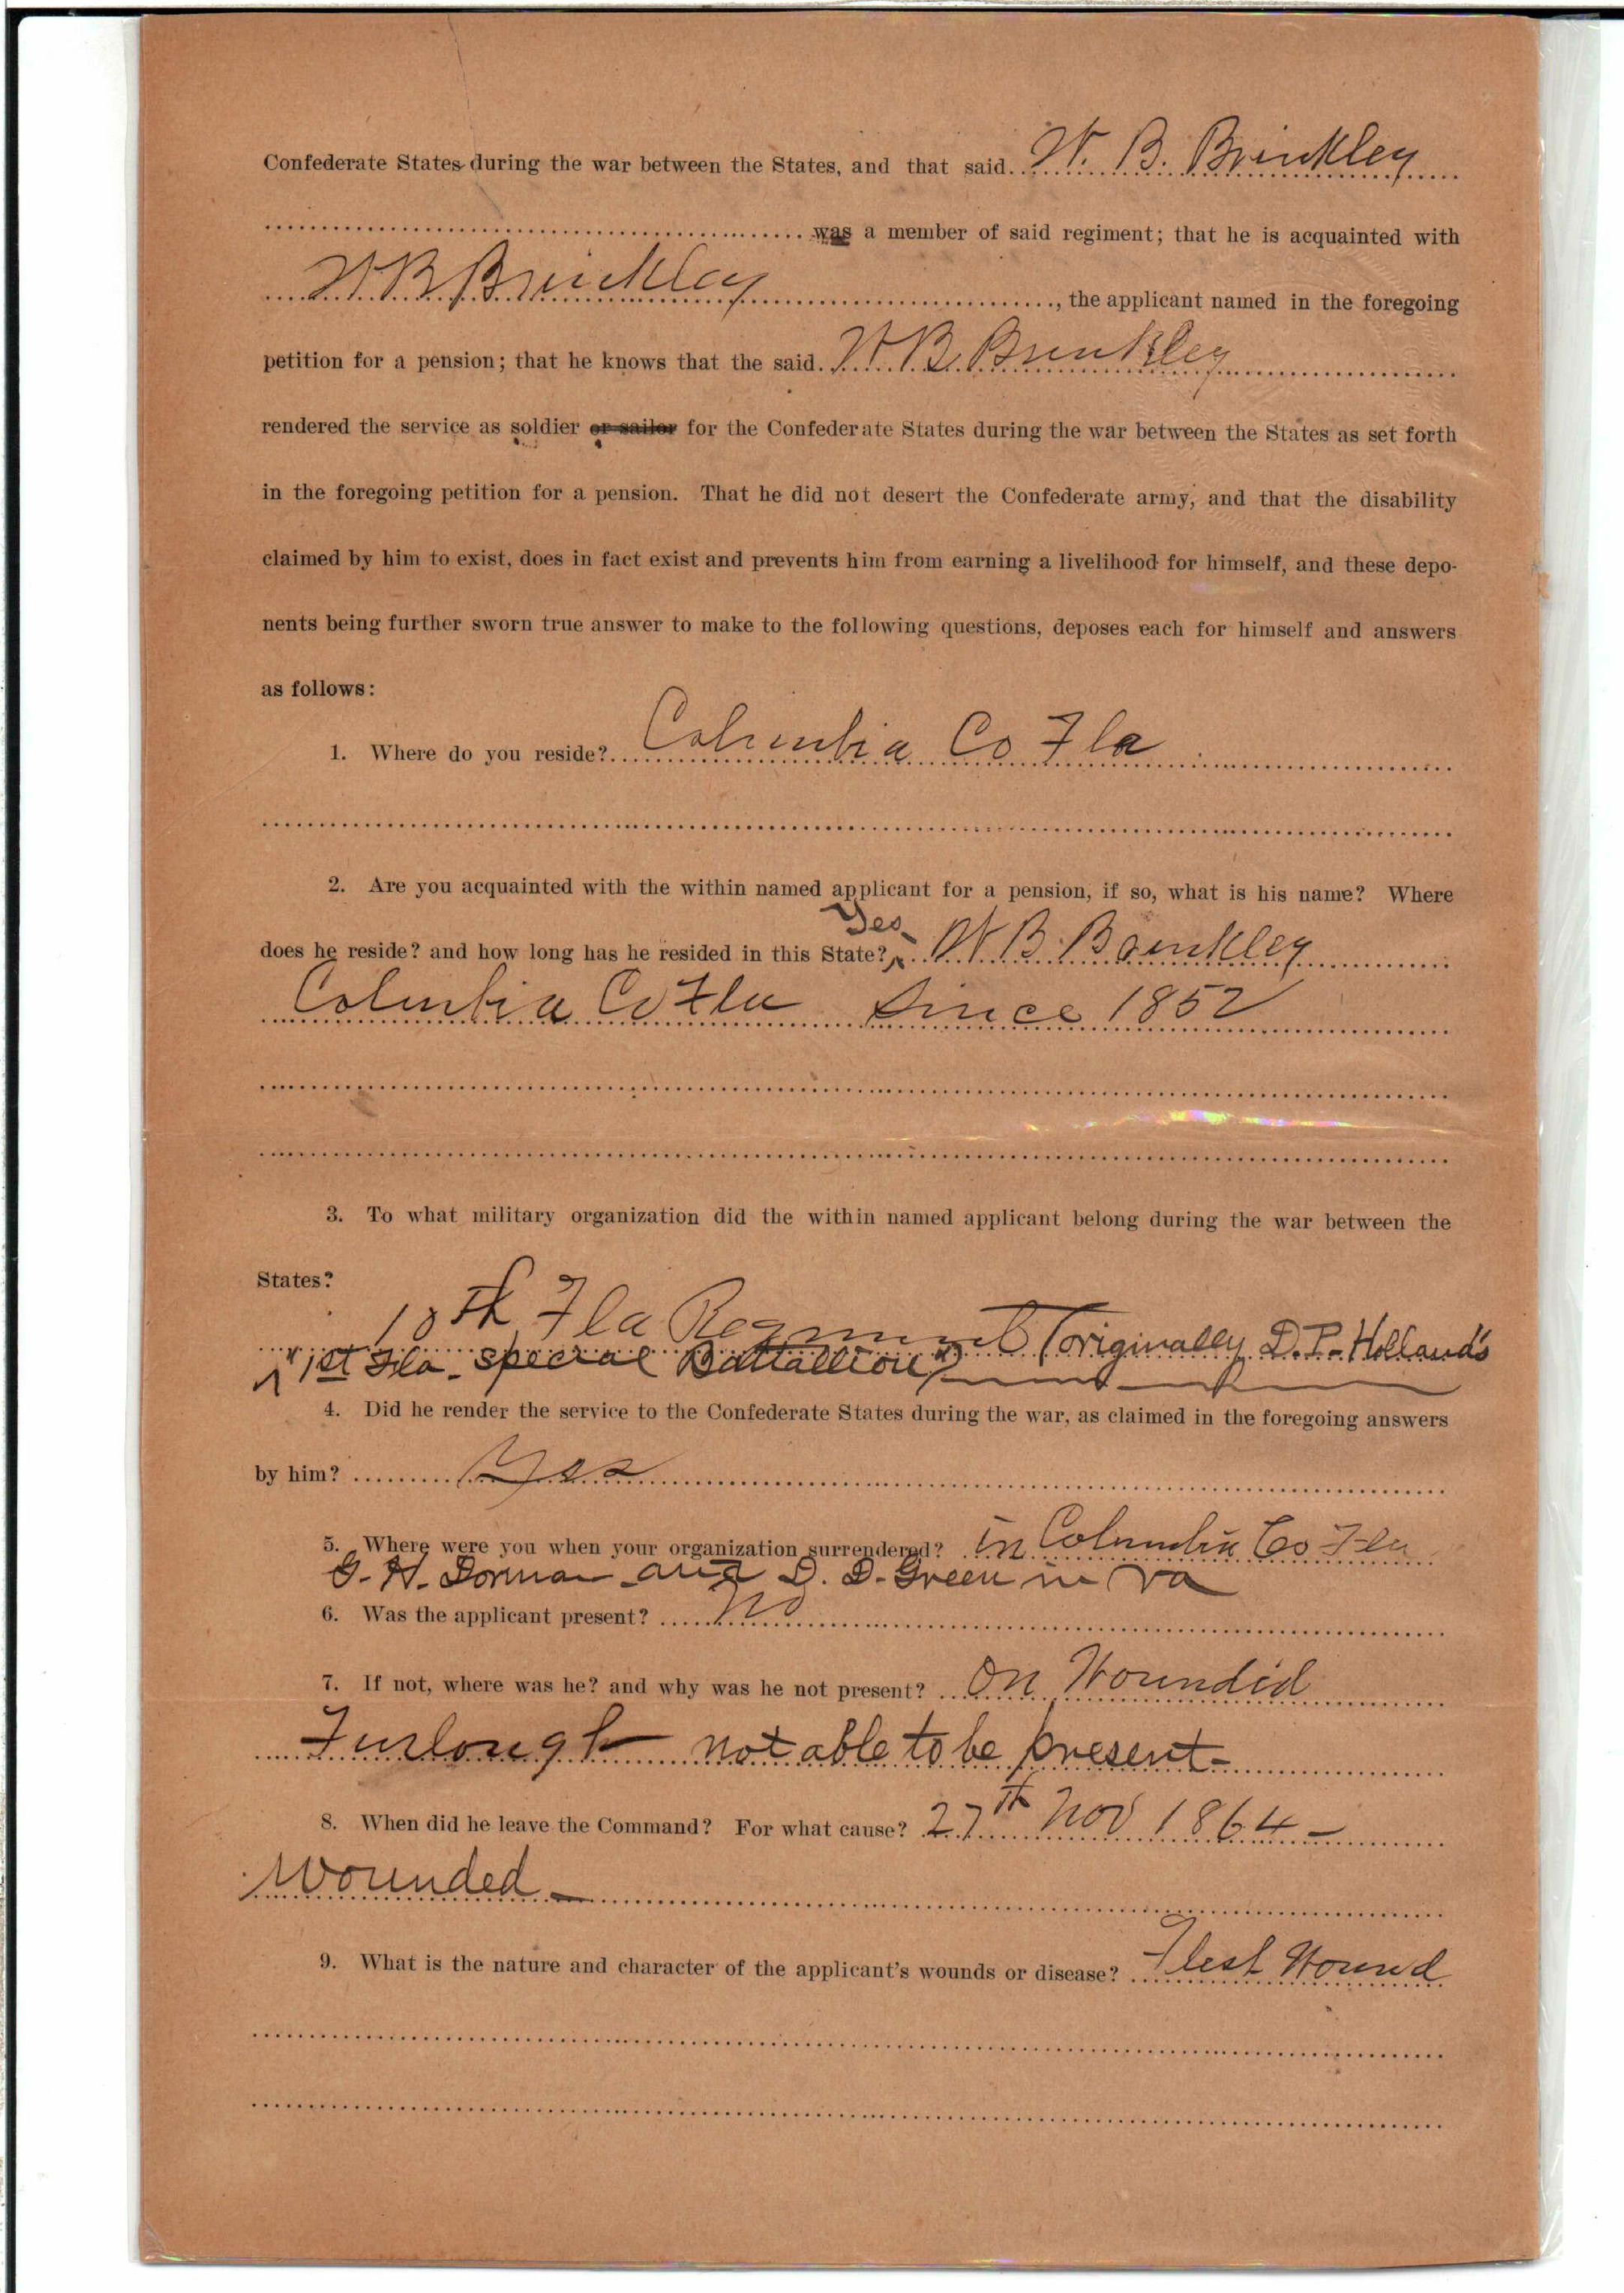 Confederate States during the war between the States, and that said W. B. Brinkley
was a member of said regiment; that he is acquainted with
W B Brinkley, the applicant named in the foregoing
petition for a pension; that he knows that the said W B Brinkley
rendered the service as soldier or sailor for the Confederate States during the war between the States as set forth
in the foregoing petition for a pension. That he did not desert the Confederate army, and that the disability
claimed by him to exist, does in fact exist and prevents him from earning a livelihood for himself, and these depo-
nents being further sworn true answer to make to the following questions, deposes each for himself and answers
as follows:
1. Where do you reside? Columbia Co Fla
2. Are you acquainted with the within named applicant for a pension, if so, what is his name? Where
Yes
does he reside? and how long has he resided in this State? W B Brinkley
Columbia Co Fla Since 1852
3. To what military organization did the within named applicant belong during the war between the
States?
10th Fla Regiment (originally D.P. Holland's
"1st Fla. special Battallion")
4. Did he render the service to the Confederate States during the war, as claimed in the foregoing answers
by him? Yes
5. Where were you when your organization surrendered? in Columbia Co Fla
G. H. Dorman and D. D. Green in Va
6. Was the applicant present? No
7. If not, where was he? and why was he not present? On Woundid
Furlough not able to be present-
8. When did he leave the Command? For what cause? 27th Nov 1864-
Wounded-
9. What is the nature and character of the applicant's wounds or disease? Flesh Wound